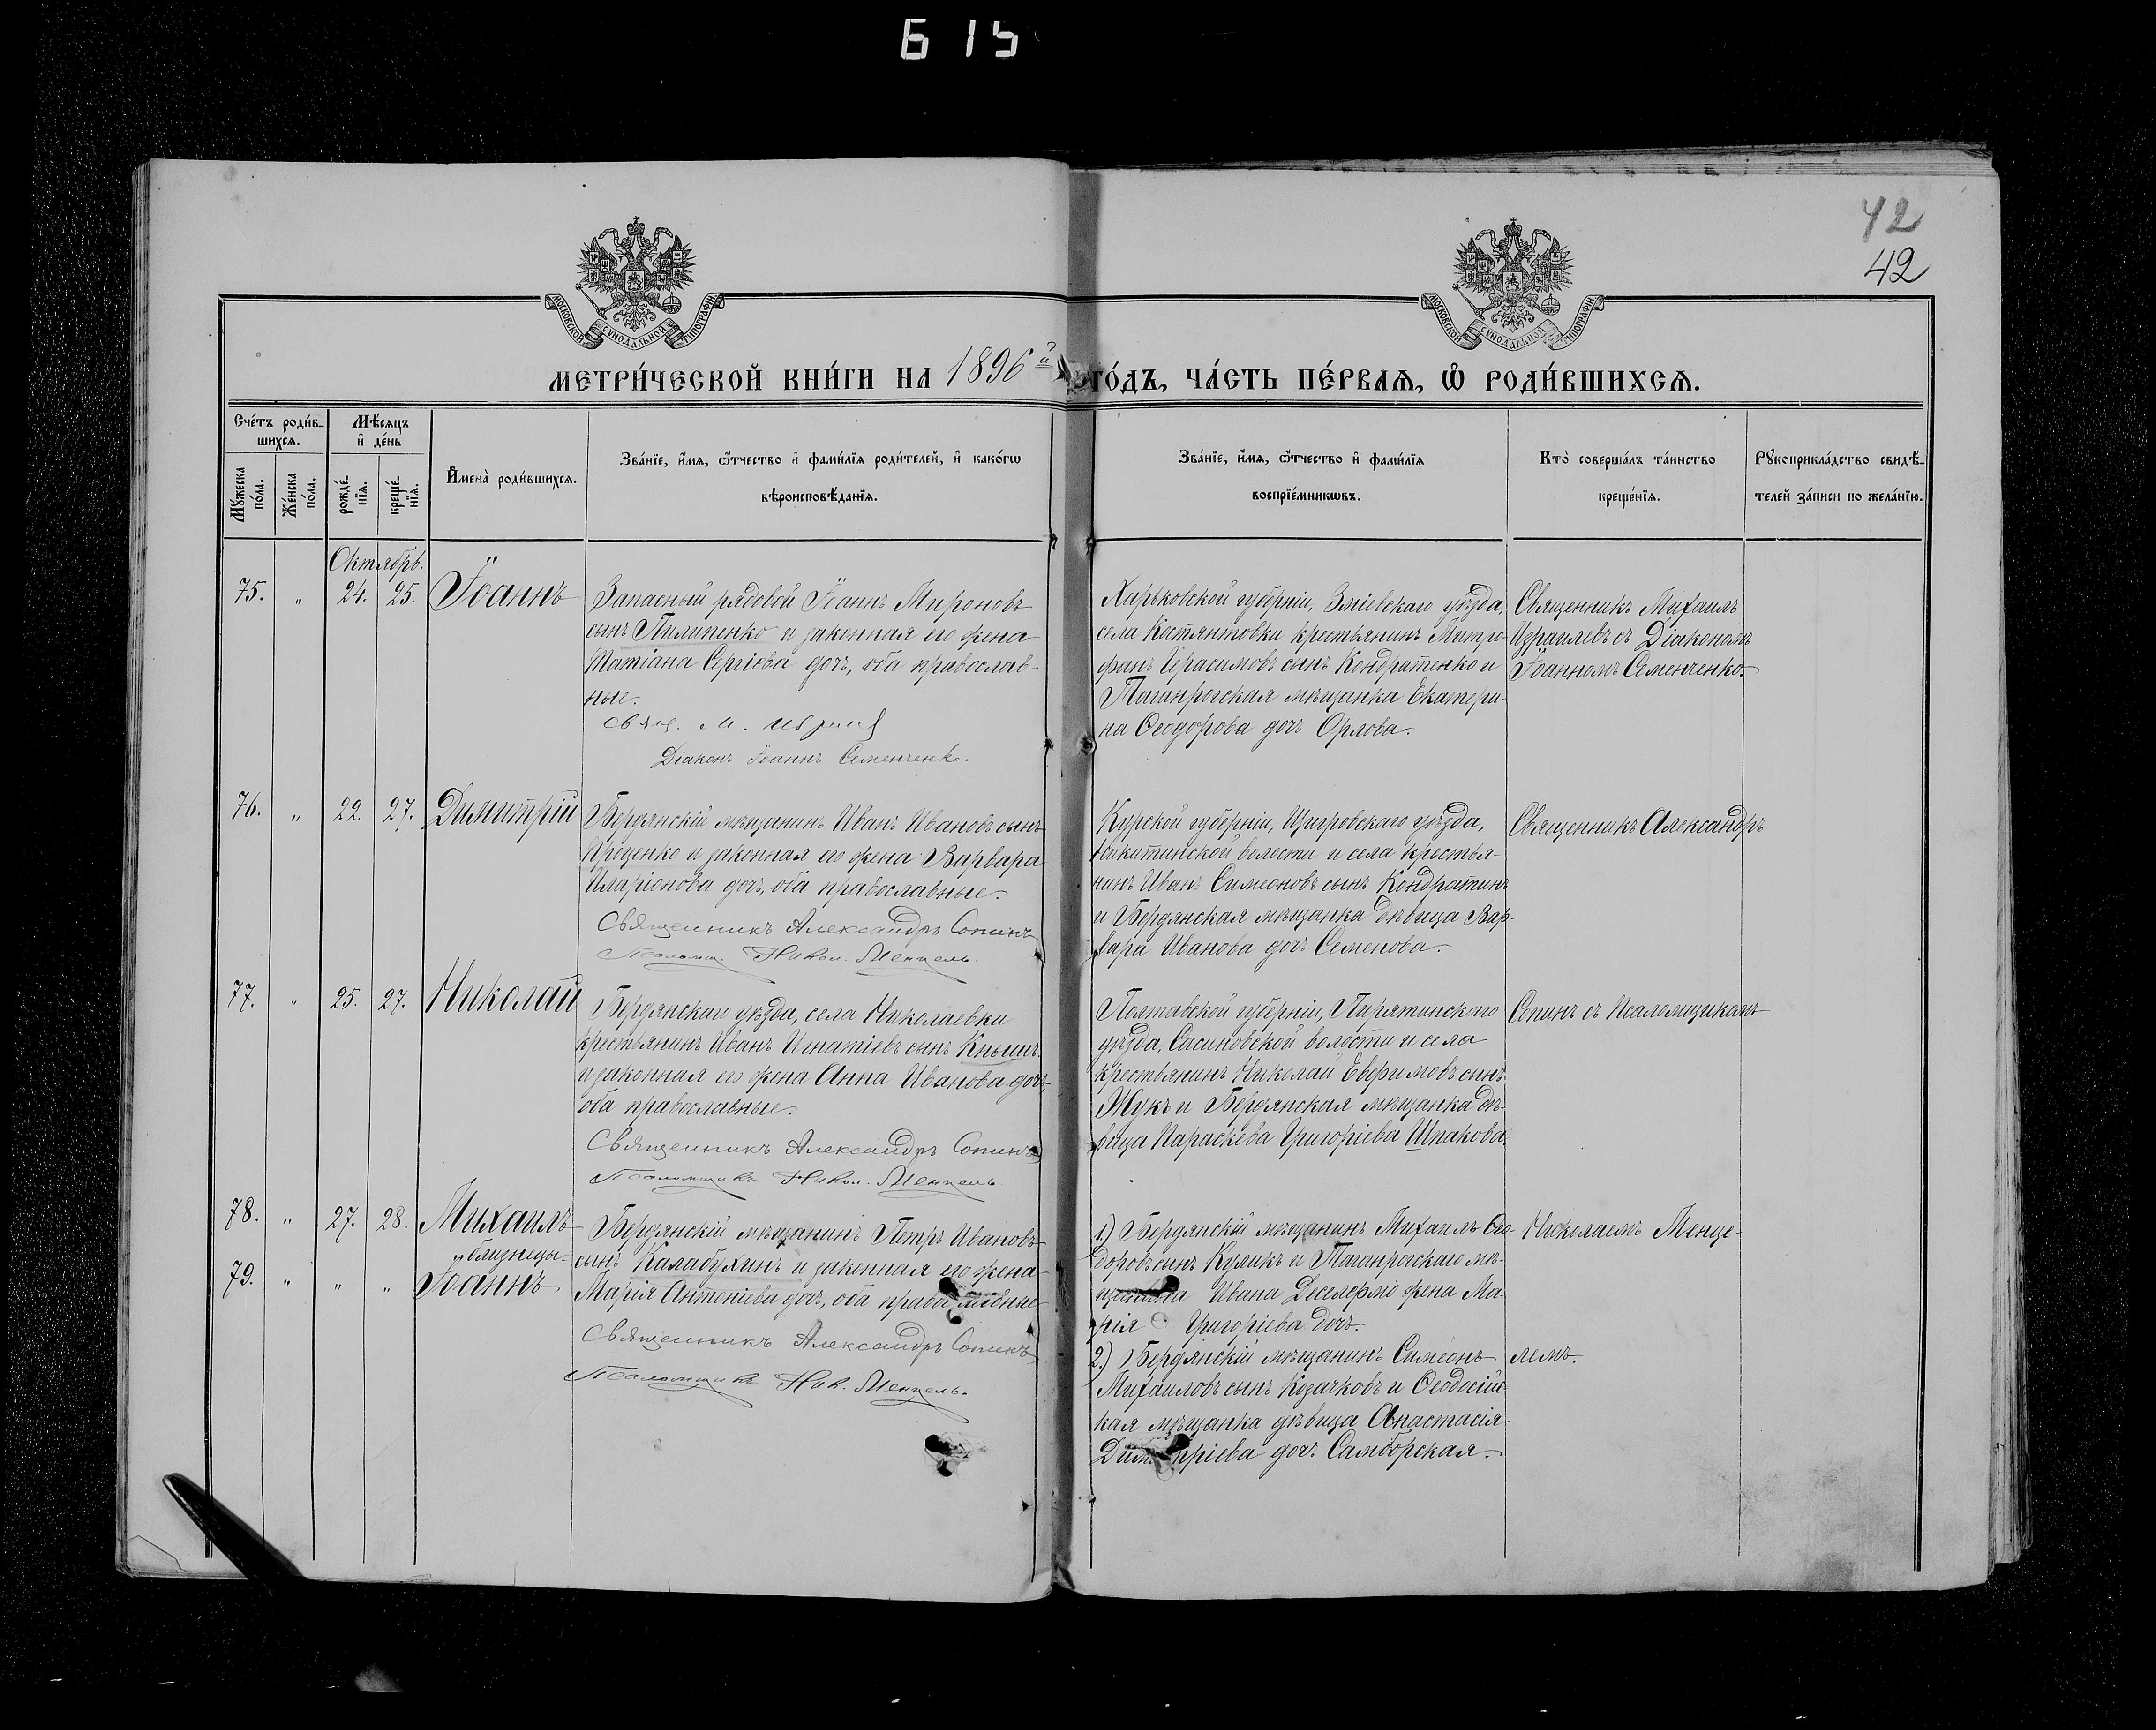 615
42
42
МОСКОВСКОЙ СѴНОДАЛЬНОЙ ТИПОГРАФІИ
МОСКОВСКОЙ СѴНОДАЛЬНОЙ ТИПОГРАФІИ
МЕТРИ́ЧЕСКОЙ КНИ́ГИ НА 1896й ГО́ДЪ, ЧА́СТЬ ПЕ́РВАѦ, Ѡ҆ РОДИ́ВШИХСѦ.
Сче́тъ роди́в-
шихсѧ.
Мꙋ́жеска по́ла.
Же́нска по́ла.
Мѣ́сѧцъ
и҆ де́нь
рожде́-
нїѧ.
креще́-
нїѧ.
И҆мена̀ роди́вшихсѧ.
Зва́нїе, и҆́мѧ, ѻ҆́тчество и҆ фами́лїѧ роди́телей, и҆ како́гѡ
вѣроисповѣ́данїѧ.
Зва́нїе, и҆́мѧ, ѻ҆́тчество и҆ фами́лїѧ
воспрїе́мникѡвъ.
Кто̀ соверша́лъ та́инство
креще́нїѧ.
Рꙋкоприкла́дство свидѣ́-
телей за́писи по жела́нїю.
Октябрь.
75. " 24. 25. Іоаннъ
Запасный рядовой Іоаннъ Мироновъ
сынъ Пилипенко и законная его жена
Татіана Сергіева дочь, оба православ-
ные.
Свящ. М.
Діаконъ Іоаннъ Семенченко.
Харьковской губерніи, Зміевскаго уѣзда,
села Костянтовки крестьянинъ Митро-
фанъ Герасимовъ сынъ Кондратенко и
Таганрогская мѣщанка Екатери-
на Ѳеодорова дочь Орлова.
Священникъ Михаилъ
Израилевъ съ Діакономъ
Іоанномъ Семенченко.
76. " 22. 27. Димитрій
Бердянскій мѣщанинъ Иванъ Ивановъ сынъ
Проценко и законная его жена Варвара
Иларіонова дочь, оба православные.
Священникъ Александръ Сопинъ
Псаломщ. Никол. Менцель.
Курской губерніи, Щигровскаго уѣзда,
Никитинской волости и села крестья-
нинъ Иванъ Симеоновъ сынъ Кондратинъ
и Бердянская мѣщанка дѣвица Вар-
вара Иванова дочь Семенова.
Священникъ Александръ
77. " 25. 27. Николай
Бердянскаго уѣзда, села Николаевки
крестьянинъ Иванъ Игнатіевъ сынъ Кнышъ
и законная его жена Анна Иванова дочь,
оба православные.
Священникъ Александръ Сопинъ
Псаломщикъ Никол. Менцель.
Полтавской губерніи, Пирятинскаго
уѣзда, Сасиновской волости и села
крестьянинъ Николай Евфимовъ сынъ
Жукъ и Бердянская мѣщанка дѣ-
вица Параскева Григоріева Шпакова.
Сопинъ съ Псаломщикомъ
78. " 27. 28. Михаилъ
близнецы.
79. " " " Іоаннъ
Бердянскій мѣщанинъ Петръ Ивановъ
сынъ Калабухинъ и законная его жена
Марія Антоніева дочь, оба православные
Священникъ Александръ Сопинъ
Псаломщикъ Ник. Менцель.
1.) Бердянскій мѣщанинъ Михаилъ Ѳео-
доровъ сынъ Куликъ и Таганрогскаго мѣ-
щанина Ивана жена Ма-
рія Григоріева дочь.
2.) Бердянскій мѣщанинъ Симеонъ
Михаиловъ сынъ Козачковъ и Ѳеодосійс-
кая мѣщанка дѣвица Анастасія
Димитріева дочь Самборская.
Николаемъ Менце-
лемъ.